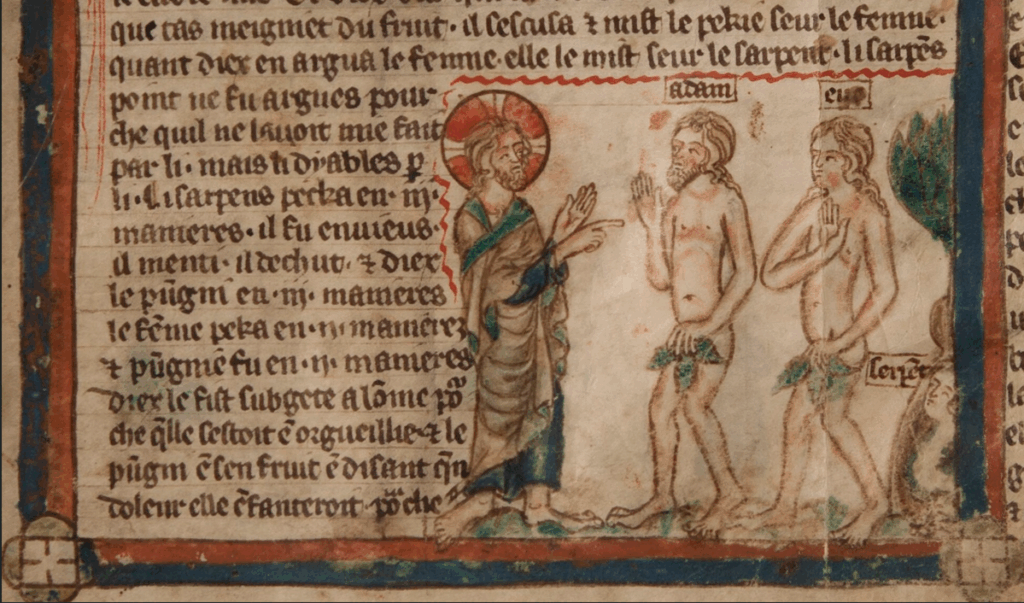 que tas meigniet du fruit · il sescusa ⁊ mist le pekie seur le femme ·
quant diex en argua le femme · elle le mist seur le sarpent · li sarpēs
point ne fu argues pour
che quil ne lavoit mie fait
par li · mais li dyables p̄
li · Li sarpens pecka en · iij ·
manieres · il fu envieus ·
il menti · il dechut · ⁊ diex
le pūgni en · iij · manieres
le fēme peka en · ij · manierez
⁊ pūgnie fu en · ij · manieres
diex le fist subgete a lōme po᷑
che q̄lle sestoit ē orgueillie · ⁊ le
pūgni ē sen fruit ē disant q̄n
doleur elle ēfanteroit · po᷑ che
adam
eve
serpēt